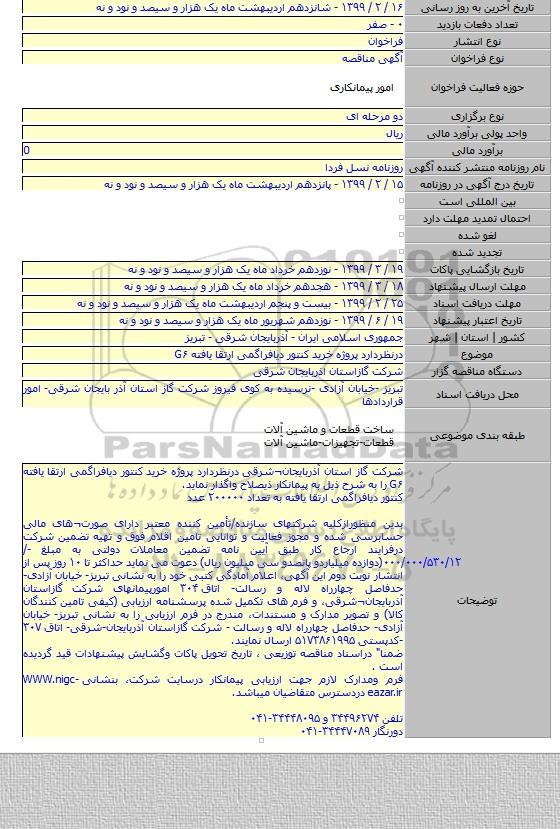 تاریخ آخرین به روز رسانی ۱۶ / ۲ / ۱۳۹۹ - شانزدهم اردیبهشت ماه یک هزار و سیصد و نود و نه
تعداد دفعات بازدید ۰ - صفر
نوع انتشار فراخوان
نوع فراخوان آگهی مناقصه
حوزه فعالیت فراخوان امور پیمانکاری
نوع برگزاری دو مرحله ای
واحد پولی برآورد مالی ریال
برآورد مالی 0
نام روزنامه منتشر کننده آگهی روزنامه نسل فردا
تاریخ درج آگهی در روزنامه ۱۵ / ۲ / ۱۳۹۹ - پانزدهم اردیبهشت ماه یک هزار و سیصد و نود و نه
بین المللی است
احتمال تمدید مهلت دارد
لغو شده
تجدید شده
تاریخ بازگشایی پاکات ۱۹ / ۳ / ۱۳۹۹ - نوزدهم خرداد ماه یک هزار و سیصد و نود و نه
مهلت ارسال پیشنهاد ۱۸ / ۳ / ۱۳۹۹ - هجدهم خرداد ماه یک هزار و سیصد و نود و نه
مهلت دریافت اسناد ۲۵ / ۲ / ۱۳۹۹ - بیست و پنجم اردیبهشت ماه یک هزار و سیصد و نود و نه
تاریخ اعتبار پیشنهاد ۱۹ / ۶ / ۱۳۹۹ - نوزدهم شهریور ماه یک هزار و سیصد و نود و نه
کشور | استان | شهر جمهوری اسلامی ایران - آذربایجان شرقی - تبریز
موضوع درنظردارد پروژه خرید کنتور دیافراگمی ارتقا یافته G۶
دستگاه مناقصه گزار شرکت گازاستان آذربایجان شرقی
محل دریافت اسناد تبریز -خیابان آزادی -نرسیده به کوی فیروز شرکت گاز استان آذر بایجان شرقی- امور
قراردادها
طبقه بندی موضوعی ساخت قطعات و ماشین آلات
قطعات-تجهیزات-ماشین آلات
ParsNamadData
شرکت گاز استان آذربایجان¬شرقی درنظردارد پروژه خرید کنتور دیافراگمی ارتقا یافته
G۶ را به شرح ذیل به پیمانکار ذیصلاح واگذار نماید.
کنتور دیافراگمی ارتقا یافته به تعداد ۲۰۰۰۰۰ عدد
بدین منظورازکلیه شرکتهای سازنده/تأمین کننده معتبر دارای صورت¬های مالی
حسابرسی شده و مجوز فعالیت و توانایی تامین اقلام فوق و تهیه تضمین شرکت
درفرایند ارجاع کار طبق آیین نامه تضمین معاملات دولتی به مبلغ -/
۰۰۰/۰۰۰/۵۳۰/۱۲(دوازده میلیاردو پانصدو سی میلیون ریال) دعوت می نماید حداکثر تا ۱۰ روز پس از
انتشار نوبت دوم این آگهی اعلام آمادگی کتبی خود را به نشانی تبریز- خیابان آزادی-
حدفاصل چهارراه لاله و رسالت- اتاق ۳۰۴ امورپیمانهای شرکت گازاستان
آذربایجان¬شرقی، و فرم های تکمیل شده پرسشنامه ارزیابی (کیفی تامین کنندگان
توضیحات کالا) و تصویر مدارک و مستندات، مندرج در فرم ارزیابی را به نشانی تبریز- خیابان
آزادی- حدفاصل چهارراه لاله و رسالت - شرکت گازاستان آذربایجان-شرقی- اتاق ۳۰۷
-کدپستی ۵۱۷۳۸۶۱۹۹۵ ارسال نمایند.
ضمنا" دراسناد مناقصه توزیعی ، تاریخ تحویل پاکات وگشایش پیشنهادات قید گردیده
است .
فرم ومدارک لازم جهت ارزیابی پیمانکار درسایت شرکت، بنشانی WWW.nigc-
eazar.ir دردسترس متقاضیان میباشد.
تلفن ۳۴۴۹۶۲۷۴ و ۳۴۴۴۸۰۹۵-۰۴۱
دورنگار ۳۴۴۴۷۰۸۹-۰۴۱